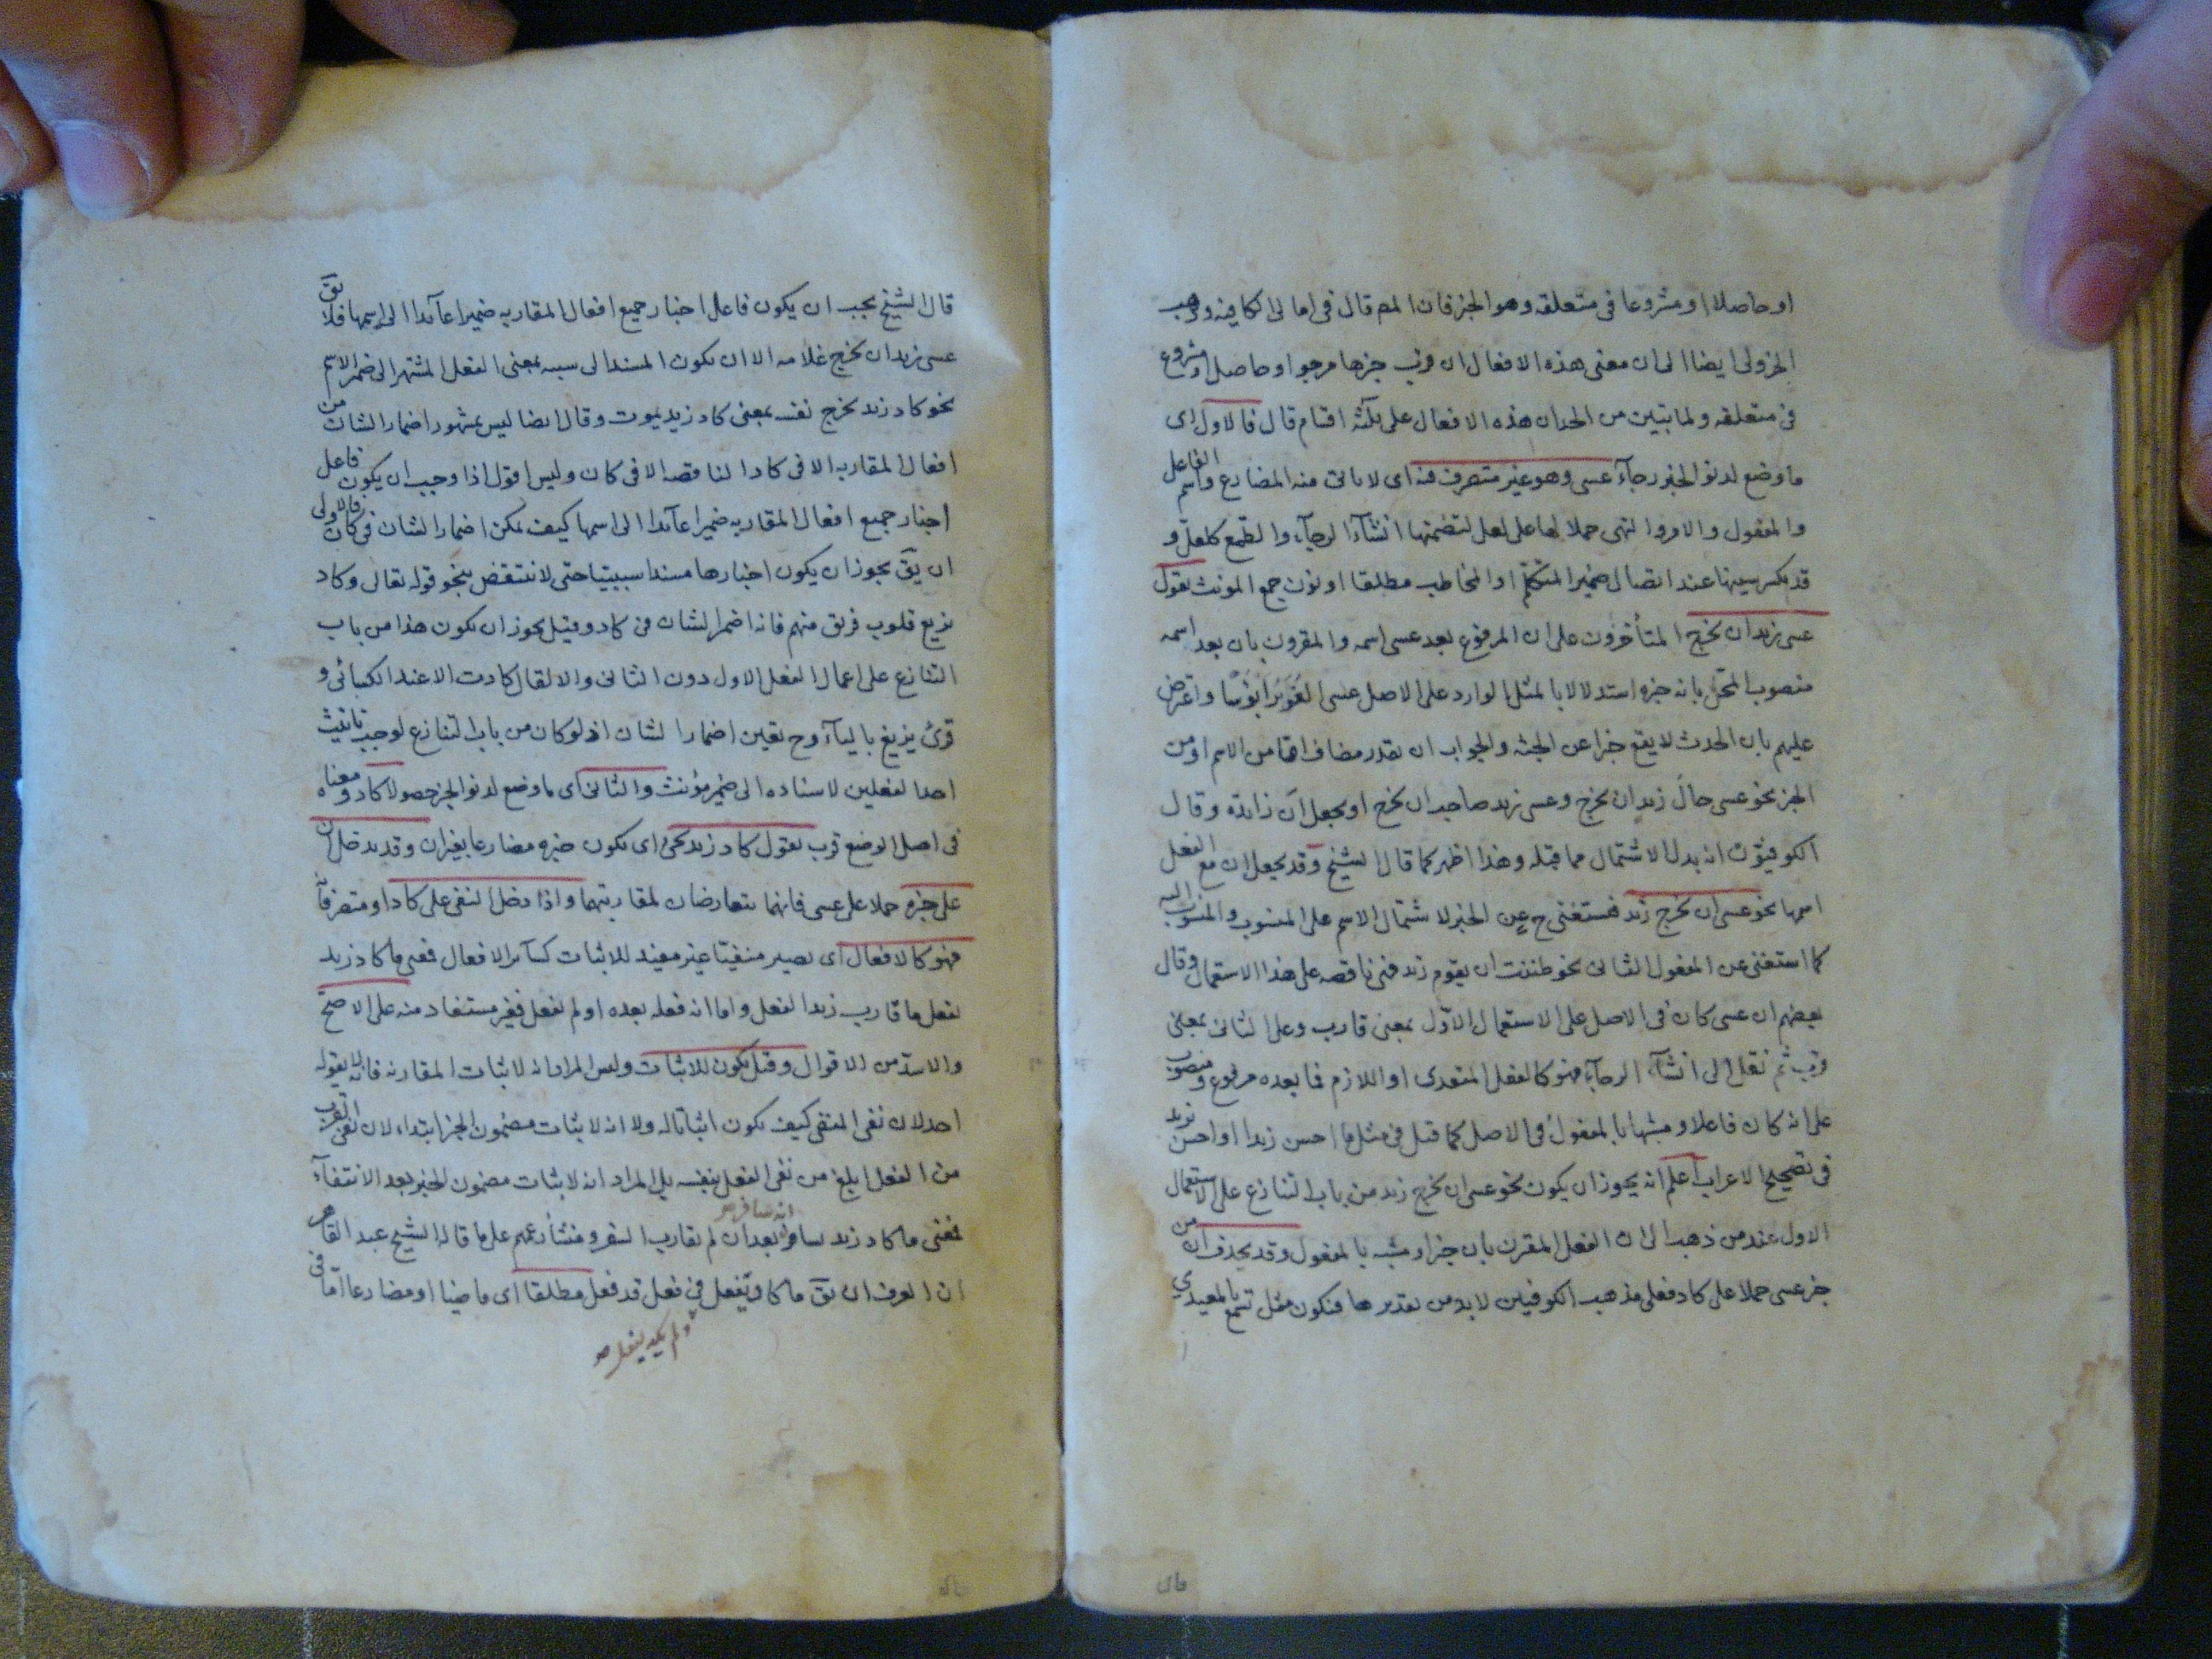 او حاصلا او مشروعا فى متعلقه وهو الخبر فان المص قال فى امالى الكافيه وذهب
الجزولى ايضا الى ان معنى هذه الافعال ان قرب خبرها مرجو او حاصل او مشروع
فى متعلقه ولما تبين من الحد ان هذه الافعال على ثلثة اقسام قال فالاول اى
ما وضع لدنو الخبر رجاء عسى وهو غير متصرف فيه اى لا ياتى منه المضارع واسم الفاعل
والمفعول والامر والنهى حملا لها على لعل لتضمنها انشاء الرجاء والطمع كلعل و
قد يكسر سينها عند اتصال ضمير المتكلم او المخاطب مطلقا او نون جمع المونث تقول
عسى زيد ان يخرج المتأخرون على ان المرفوع بعد عسى اسمه والمقرون بان بعد اسمه
منصوب المحل بانه خبره استدلالا بالمثل الوارد على الاصل عسى الغوير ابؤسا واعترض
عليهم بان الحدث لا يقع خبرا عن الجثه والجواب ان يقدر مضاف اما من الاسم او من
الخبر نحو عسى حال زيد ان يخرج وعسى زيد صاحب ان يخرج او يجعل ان زائدة وقال
الكوفيون انه بدل الاشتمال مما قبله وهذا اظهر كما قال الشيخ وقد يجعل ان مع الفعل
اسمها نحو عسى ان يخرج زيد فستغنى ح عن الخبر لاشتمال الاسم على المنسوب والمنسوب اليه
كما استغنى عن المفعول الثانى نحو ظننت ان يقوم زيد فهى ناقصه على هذا الاستعمال وقال
بعضهم ان عسى كان فى الاصل على الاستعمال الاول بمعنى قارب وعلى الثانى بمعنى
قرب ثم نقل الى انشاء الرجاء فهو كالفعل المتعدى او اللازم فما بعده مرفوع ومنصوب
على انه كان فاعلا ومشبها بالمفعول فى الاصل كما قيل فى مثل ما احسن زيدا او احسن بزيد
فى تصحيح الاعراب اعلم انه يجوز ان يكون نحو عسى ان يخرج زيد من باب التنازع على الاستعمال
الاول عند من ذهب الى ان الفعل المقرن بان خبر او مشبه بالمفعول وقد يحذف ان من
خبر عسى حملا على كاد فعلى مذهب الكوفيين لا بد من تقديرها فتكون مثل تسمع بالمعيدي
قال الشيخ يجب ان يكون فاعل اخبار جميع افعال المقاربه ضميرا عائدا الى اسمها فلا يق
عسى زيد ان يخرج غلامه الا ان يكون المسند الى سببه بمعنى الفعل المشتهر الى ضمير الاسم
نحو كاد زيد يخرج نفسه بمعنى كاد زيد يموت وقال ايضا ليس بمشهور اضمار الشان من
افعال المقاربه الا فى كاد النا قصه الا فى كان وليس اقول اذا وجب ان يكون فاعل
اخبار جميع افعال المقاربه ضميرا عائدا الى اسمها كيف يمكن اضمار الشان فى كان فالاولى
ان يق يجوز ان يكون اخبارها مسندا سببيا حتى لا ننتقض بنحو قوله تعالى وكاد
يزيغ قلوب فريق منهم فانه اضمر الشان فى كاد وقيل يجوز ان يكون هذا من باب
التنازع على اعمال الفعل الاول دون الثانى والا لقال كادت الا عند الكسائى و
قرئ يزيغ بالياء وح تعين اضمار الشان اذ لو كان من باب التنازع لوجب تانيث
احد الفعلين لاسناده الى ضمير مؤنث والثانى اى ما وضع لدنو الخبر حصولا كاد ومعناه
فى اصل الوضع قرب تقول كاد زيد يجئ اى يكون خبره مضارعا بغير ان وقد يدخل ان
على خبره حملا على عسى فانهما يتعارضان لمقاربتهما واذا دخل النفى على كاد او متصرفاته
فهو كالافعال اى يصير منفيا غير مفيد للاثبات كسائر الافعال فمعنى ما كاد زيد
يفعل ما قارب زيد الفعل واما انه فعله بعده او لم يفعل فغير مستفاد منه على الاصح
والاسد من الاقوال وقيل يكون للاثبات وليس المراد انه لاثبات المقاربه فانه لا يقوله
احد لان نفى المنفى كيف يكون اثباتا له ولا انه لاثبات مضمون الخبر ابتداء لان نفى القرب
من الفعل ابلغ من نفى الفعل بنفسه بل المراد انه لاثبات مضمون الخبر بعد الانتفاء
انه سافر صر
فمعنى ما كاد زيد يسافر بعد ان لم يقارب السفر ومنشأ زعمهم على ما قاله الشيخ عبد القاهر
ان العرف ان يق ما كاد يفعل فى فعل قد فعل مطلقا اى ماضيا او مضارعا اما فى
ولم يكد يفعل صر